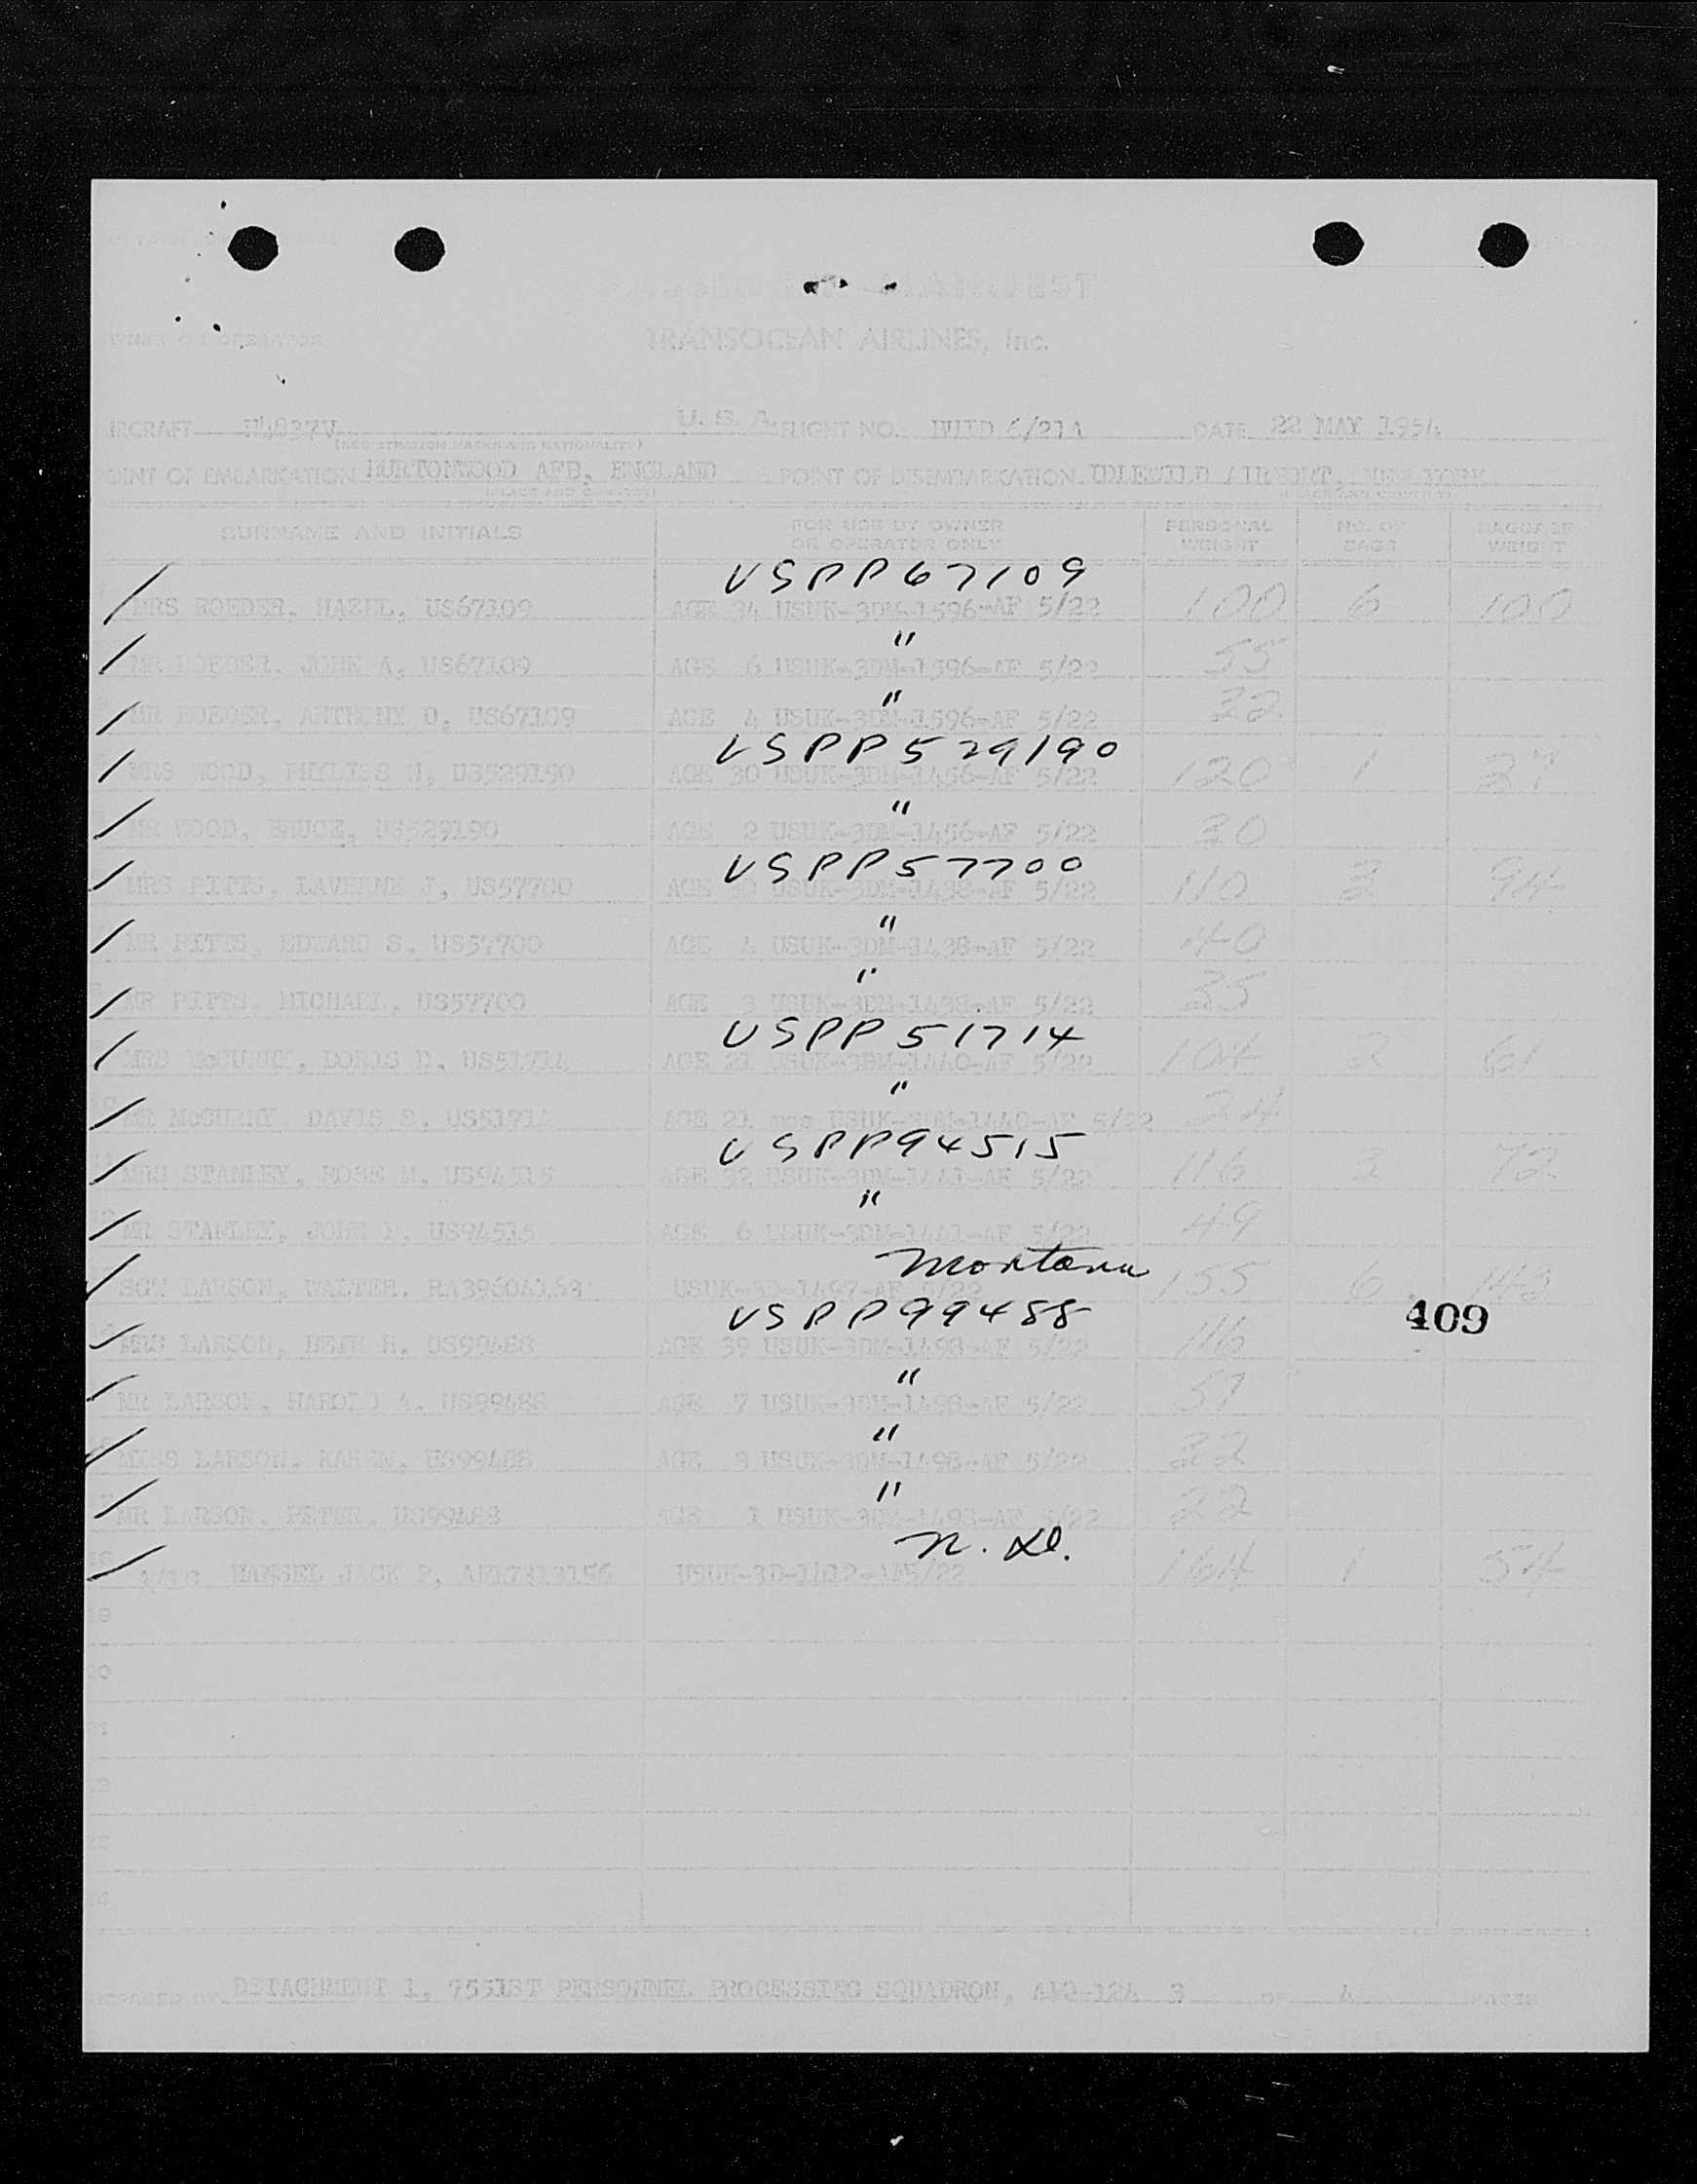 TRANSOCEAN AIRLINES, Inc.
OWNER OR OPERATOR
AIRCRAFT N4837V U. S. A. FLIGHT NO. 6/21A DATE 22 MAY 1954
(REGISTRATION MARKS AND NATIONALITY)
POINT OF EMBARKATION BURTONWOOD AFB, ENGLAND POINT OF DISEMBARKATION IDLEWILD AIRPORT, NEW YORK
SURNAME AND INITIALS FOR USE BY OWNER OR OPERATOR ONLY PERSONAL WEIGHT NO. OF BAGS BAGGAGE WEIGHT
USPP67109
MRS ROEDER, HAZEL, US67109 AGE 34 USUK-3DM-1596-AF 5/22 100 6 100
"
MR ROEDER, JOHN A, US67109 AGE 6 USUK-3DM-1596-AF 5/22 55
"
MR ROEDER, ANTHONY D, US67109 AGE 4 USUK-3DM-1596-AF 5/22 32
USPP529190
MRS WOOD, PHYLISS M, US529190 AGE 30 USUK-3DM-1456-AF 5/22 120 1 37
"
MR WOOD, BRUCE, US529190 AGE 2 USUK-3DM-1456-AF 5/22 30
USPP57700
MRS PITTS, LAVERNE J, US57700 AGE 30 USUK-3DM-1438-AF 5/22 110 3 94
"
MR PITTS, EDWARD S, US57700 AGE 4 USUK-3DM-1438-AF 5/22 40
"
MR PITTS, MICHAEL, US57700 AGE 3 USUK-3DM-1438-AF 5/22 35
USPP51714
MRS McGURRY, DORIS D, US51714 AGE 21 USUK-3DM-1440-AF 5/22 104 2 61
"
MR McGURRY, DAVIS S, US51714 AGE 21 mos USUK-3DM-1440-AF 5/22 24
USPP94515
MRS STANLEY, ROSE M, US94515 AGE 32 USUK-3DM-1441-AF 5/22 116 3 72
"
MR STANLEY, JOHN US94515 AGE 6 USUK-3DM-1441-AF 5/22 49
Montana
SGT LARSON, WALTER, RA39604163 USUK-3D-1497-AF 5/22 155 6 143
USPP99488
409
MRS LARSON, BETH H, US99488 AGE 39 USUK-3DM-1498-AF 5/22 116
"
MR LARSON, HAROLD A, US99488 AGE 7 USUK-3DM-1498-AF 5/22 57
"
MISS LARSON, KAREN, US99488 AGE 3 USUK-3DM-1498-AF 5/22 32
"
MR LARSON, PETER, US99488 AGE 1 USUK-3DM-1498-AF 5/22 22
N. D.
A/1C HANSEL JACK P, AF17313156 USUK-3D-1412-AF5/22 164 1 54
19
20
21
22
23
24
PREPARED BY DETACHMENT 1, 7551ST PERSONNEL PROCESSING SQUADRON, APO-124 3 OF 4 PAGES